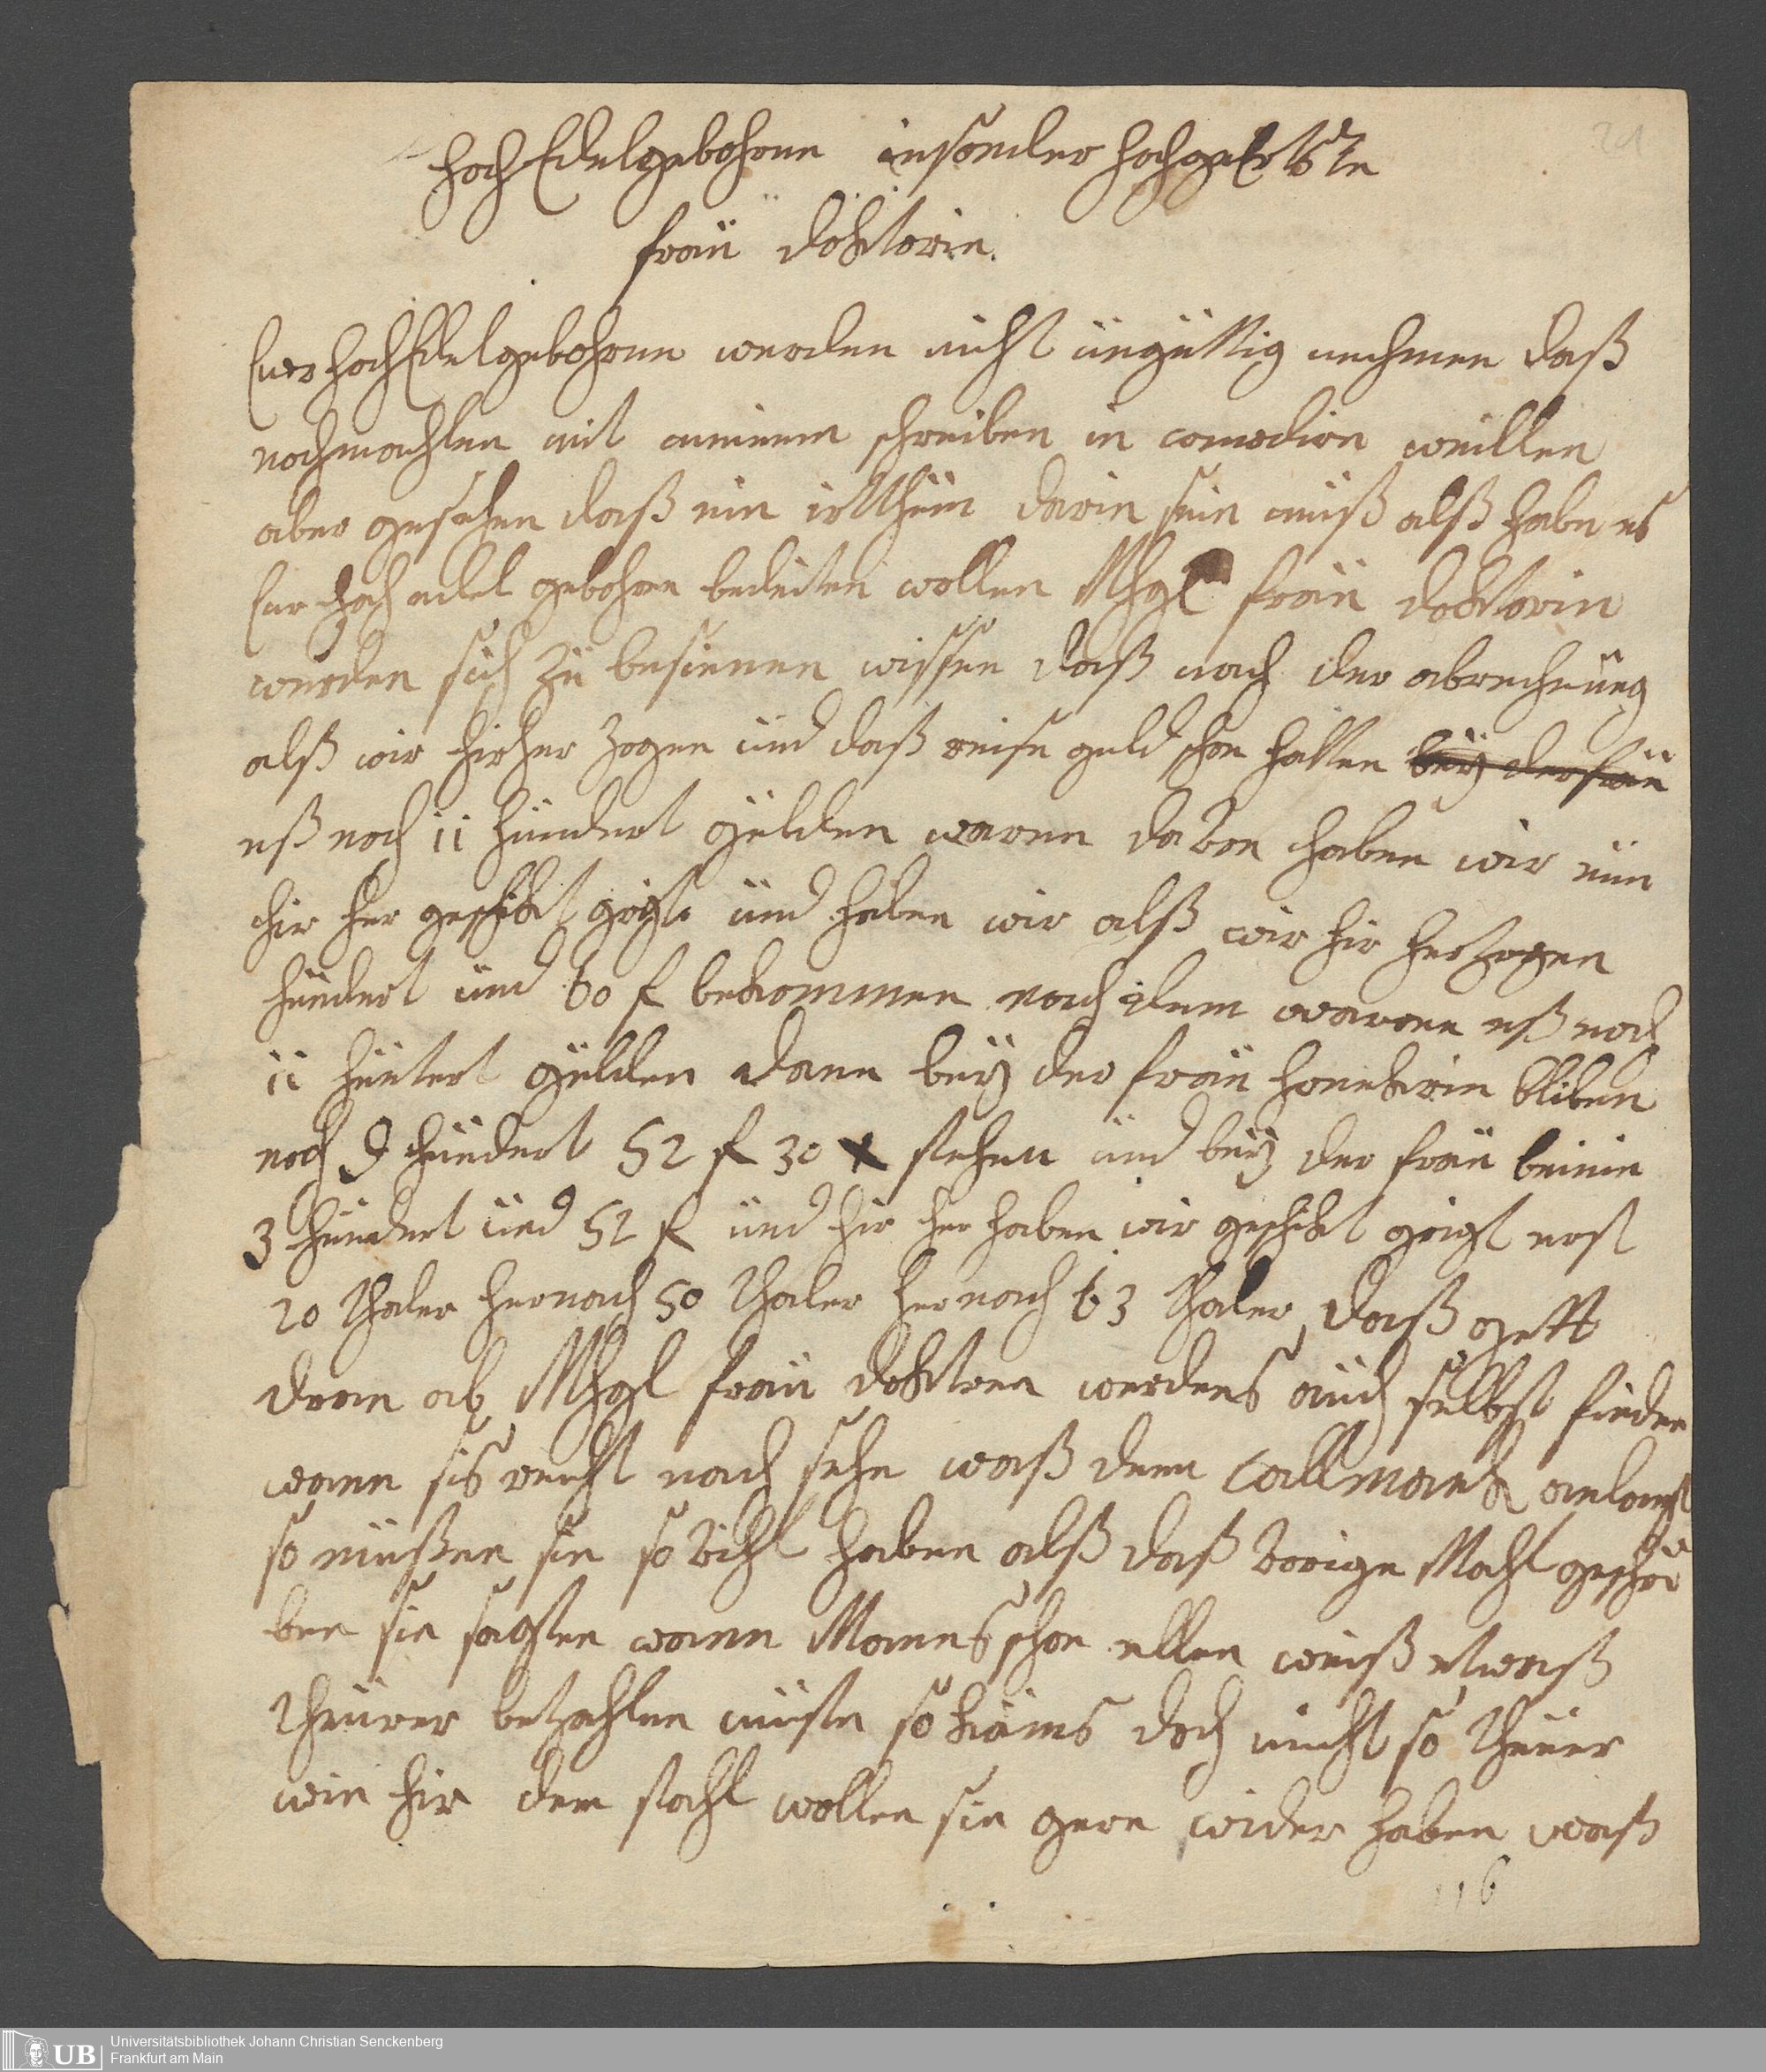 Hoch Edelgebohrne insonder hochge
frau docktorin.
Euer Hoch Edelgebohrne werden nicht ungüttig nehmen daß
nochmahlen mit meinem schreiben in comodire weillen
aber gesehen daß ein irtthum darin sein muß alß habe es
Eur hoch edel gebohrne bedeiten wollen Mhgl frau docktorin
werden sich zu besienen wissen daß nach der abrechnung
alß wir hirher zogen und daß reise geld schon hatten bey der frau
eß noch 11 hundert gulden waren davon haben wir nun
hir her geschickt und haben wir alß wir hir her zogen
hundert und 60 f bekommen nach dem waren eß noch
11 huntert gulden dann bey der frau bliben
noch 9 hundert 52 f 30 x stehen und bey der frau
3 hundert und 52 f und hir her haben wir geschickt erst
20 thaler hernach 50 thaler hernach 63 thaler daß gett
dran ab Mhgl frau docktren werdens auch selbst finden
wann sis recht nach sehe waß dem Callmanck anlangt
so müßen sie so vihl haben alß daß vorige Mahl geschri
ben sie sagten wann Manns schon ellen weiß etwaß
theurer bezahlen müste so käms doch nicht so theuer
wie hir dem wollen sie gern wider haben waß
116
Universitätsbibliothek Johann Christian Senckenberg
Frankfurt am Main
UB